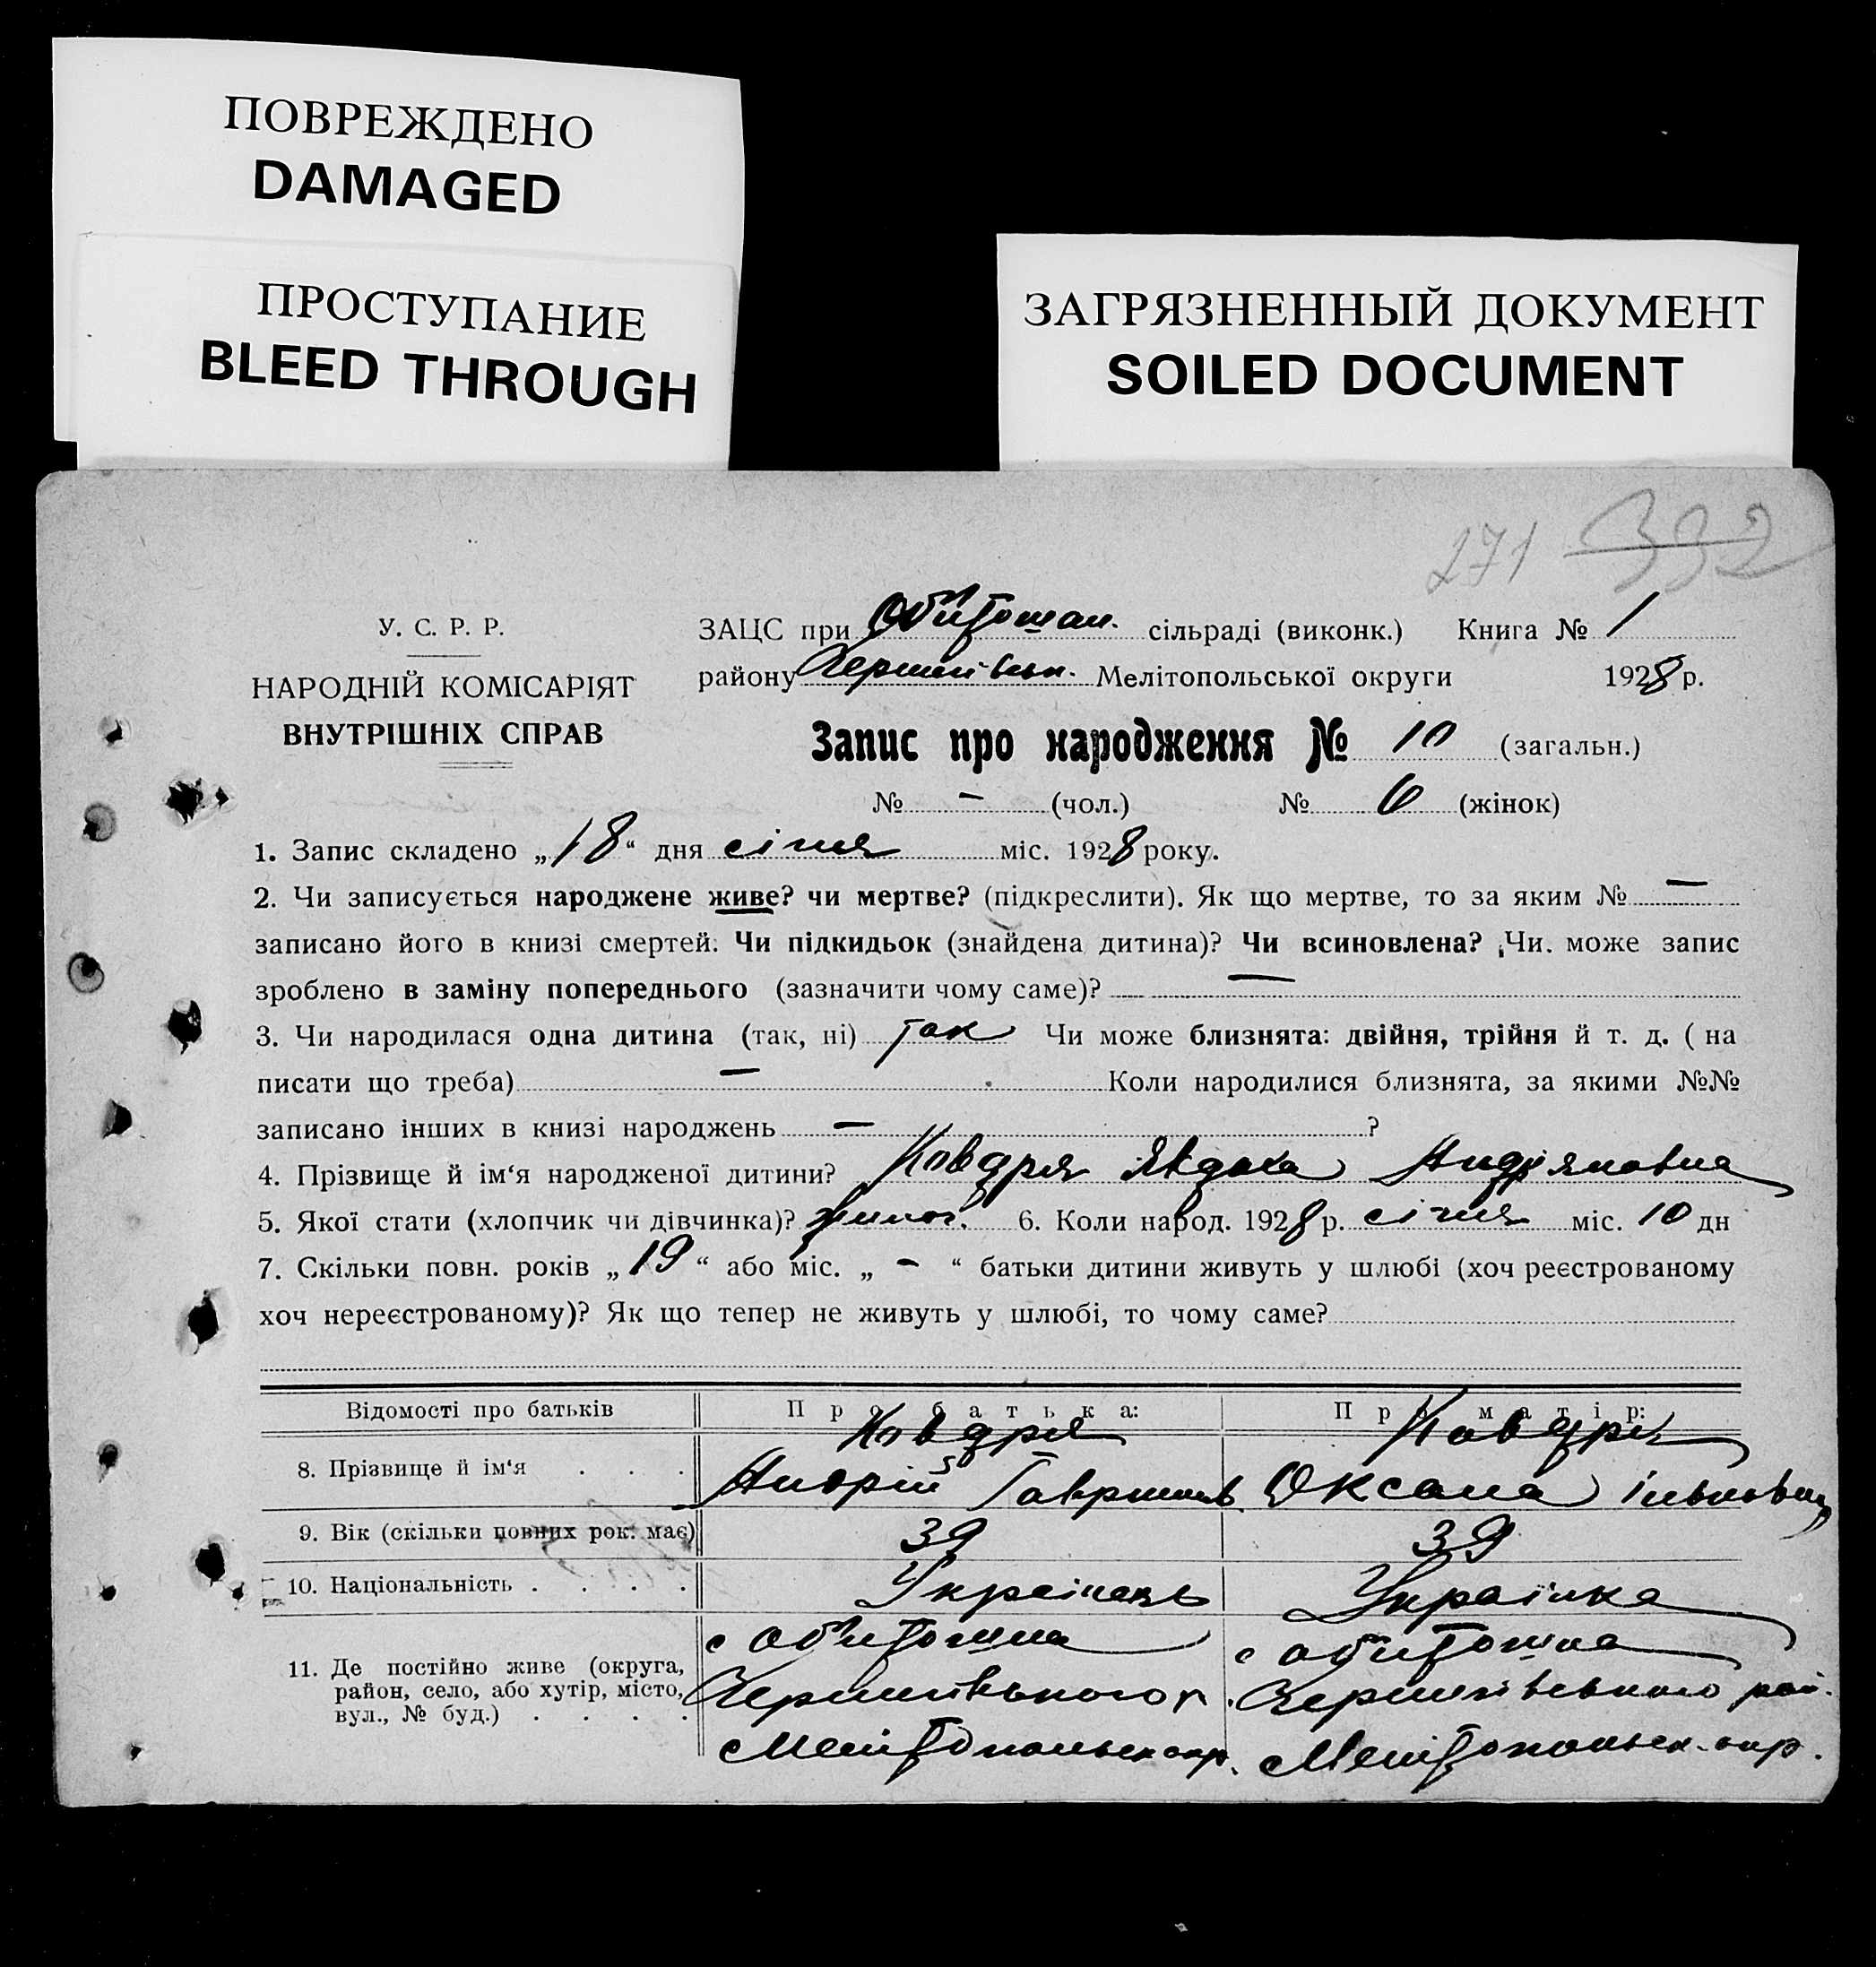 ПОВРЕЖДЕНО
DAMAGED
ПРОСТУПАНИЕ
BLEED THROUGH
ЗАГРЯЗНЕННЫЙ ДОКУМЕНТ
SOILED DOCUMENT
271 332
У. С. Р. Р.
НАРОДНІЙ КОМІСАРІЯТ
ВНУТРІШНІХ СПРАВ
ЗАЦС при Обиточан. сільраді (виконк.) Книга № 1
району Мелітопольської округи 1928 р.
Запис про народження № 10 (загальн.)
№ – (чол.) № 6 (жінок)
1. Запис складено „18“ дня січня міс. 1928 року.
2. Чи записується народжене живе? чи мертве? (підкреслити). Як що мертве, то за яким № —
записано його в книзі смертей. Чи підкидьок (знайдена дитина)? Чи всиновлена? Чи може запис
зроблено в заміну попереднього (зазначити чому саме)? —
3. Чи народилася одна дитина (так, ні) так Чи може близнята: двійня, трійня й т. д. ( на
писати що треба) — Коли народилися близнята, за якими №№
записано інших в книзі народжень — ?
4. Прізвище й ім‘я народженої дитини? Ковдря Явдоха Андріяновна
5. Якої стати (хлопчик чи дівчинка)? жіноч. 6. Коли народ. 1928 р. січня міс. 10 дн
7. Скільки повн. років „19“ або міс. „ – “ батьки дитини живуть у шлюбі (хоч реєстрованому
хоч нереєстрованому)? Як що тепер не живуть у шлюбі, то чому саме?
Відомості про батьків Про батька: Про матір:
Ковдря Ковдря
8. Прізвище й ім‘я . . . Андрій Оксана
9. Вік (скільки повних рок. має) 39 39
10. Національність . . . . Українець Українка
с Обиточна с Обиточна
11. Де постійно живе (округа,
район, село, або хутір, місто,
вул., № буд.) . . . .
Мелітопольск окр. Мелітопольск. окр.